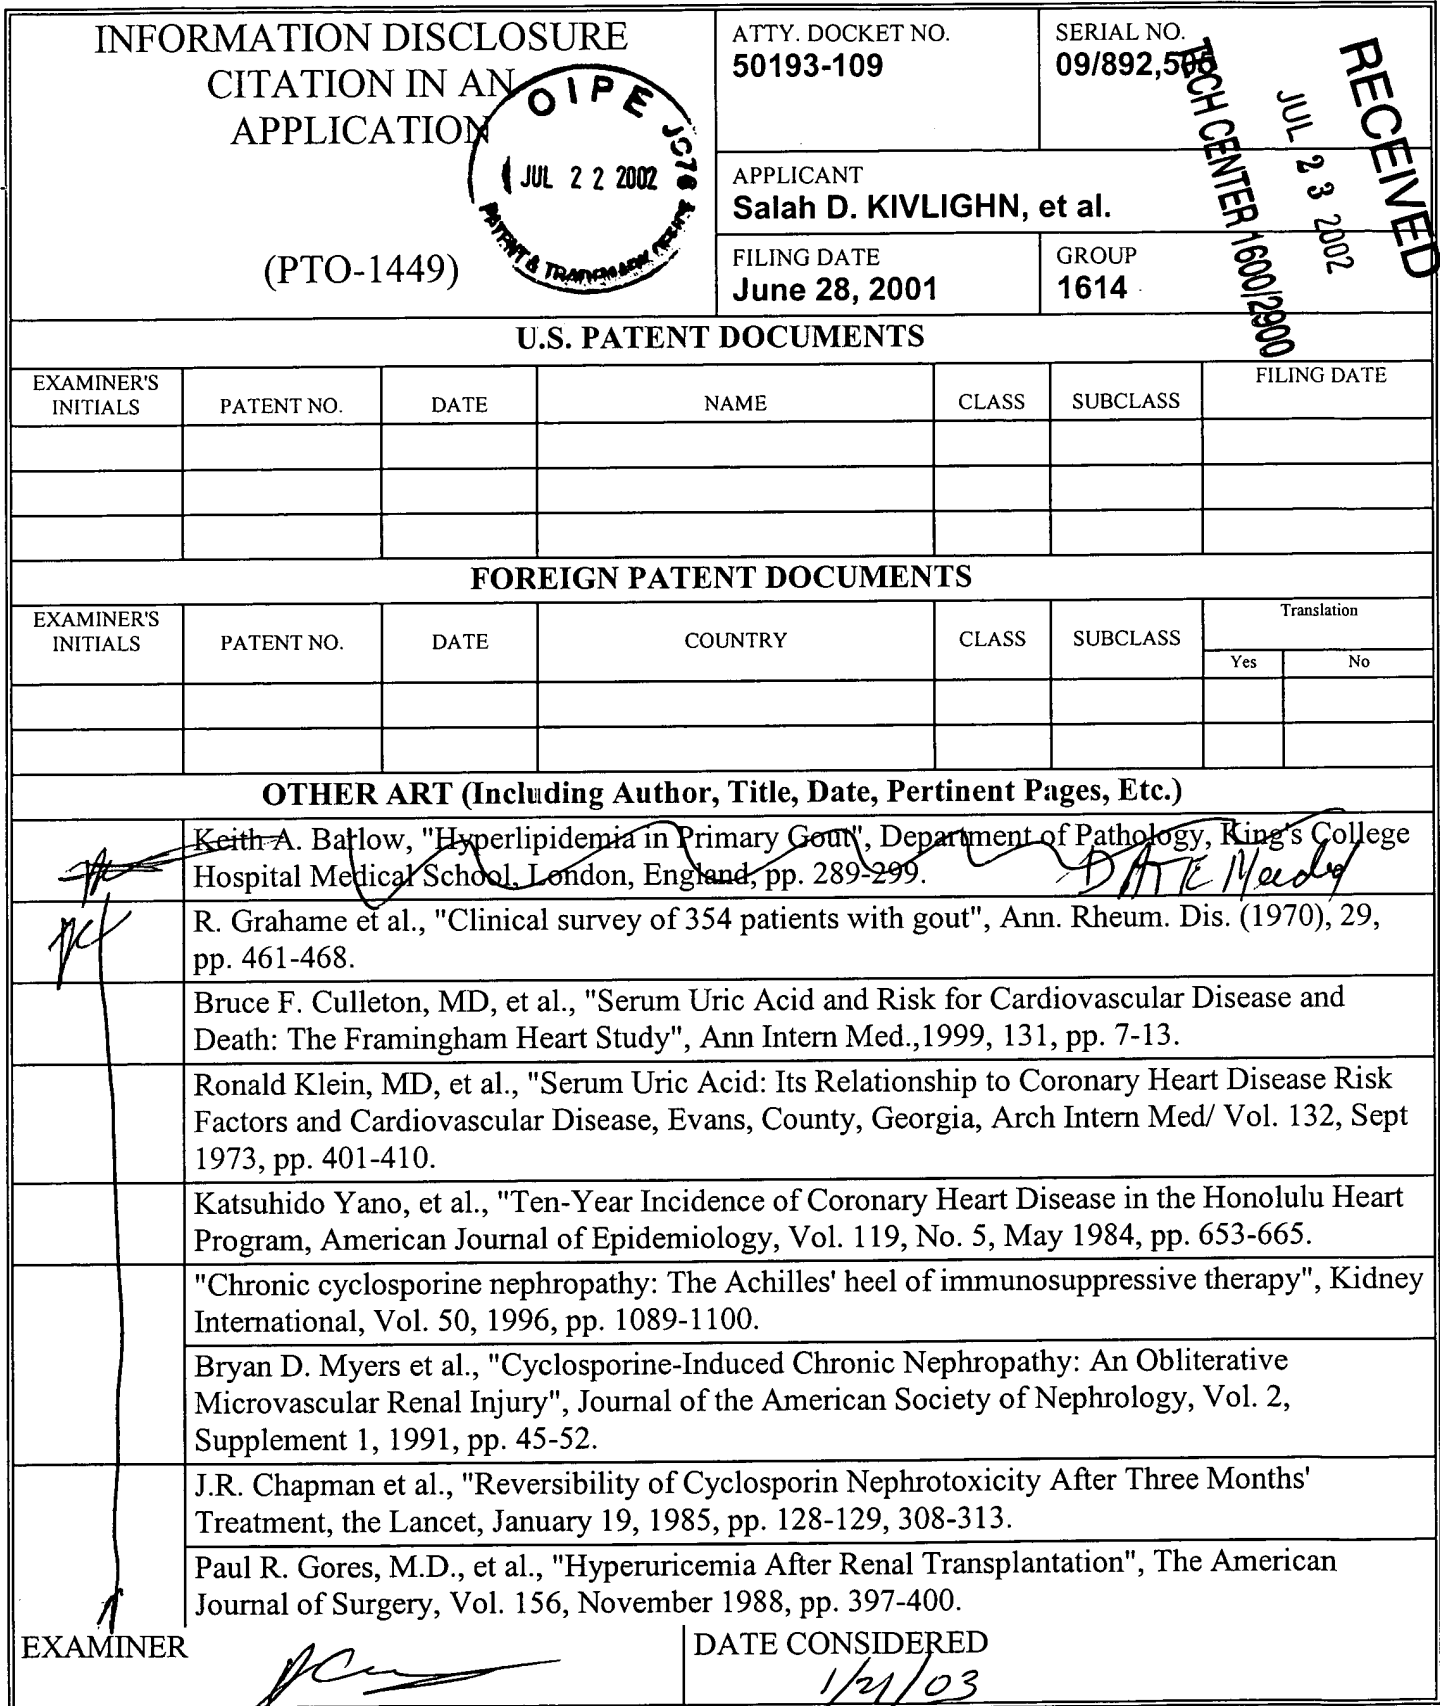 INFORMATION DISCLOSURE
CITATION IN AN
APPLICATION
(PTO-1449)
OIPE JC78
JUL 2 2 2002
PATENT & TRADEMARK OFFICE
ATTY. DOCKET NO.
50193-109
SERIAL NO.
09/892,505
APPLICANT
Salah D. KIVLIGHN, et al.
FILING DATE
June 28, 2001
GROUP
1614
RECEIVED
JUL 2 3 2002
TECH CENTER 1600/2900
U.S. PATENT DOCUMENTS
EXAMINER'S
INITIALS
PATENT NO.
DATE
NAME
CLASS
SUBCLASS
FILING DATE
FOREIGN PATENT DOCUMENTS
EXAMINER'S
INITIALS
PATENT NO.
DATE
COUNTRY
CLASS
SUBCLASS
Translation
Yes
No
OTHER ART (Including Author, Title, Date, Pertinent Pages, Etc.)
Keith A. Barlow, "Hyperlipidemia in Primary Gout", Department of Pathology, King's College
Hospital Medical School, London, England, pp. 289-299.
DATE Needed
R. Grahame et al., "Clinical survey of 354 patients with gout", Ann. Rheum. Dis. (1970), 29,
pp. 461-468.
Bruce F. Culleton, MD, et al., "Serum Uric Acid and Risk for Cardiovascular Disease and
Death: The Framingham Heart Study", Ann Intern Med.,1999, 131, pp. 7-13.
Ronald Klein, MD, et al., "Serum Uric Acid: Its Relationship to Coronary Heart Disease Risk
Factors and Cardiovascular Disease, Evans, County, Georgia, Arch Intern Med/ Vol. 132, Sept
1973, pp. 401-410.
Katsuhido Yano, et al., "Ten-Year Incidence of Coronary Heart Disease in the Honolulu Heart
Program, American Journal of Epidemiology, Vol. 119, No. 5, May 1984, pp. 653-665.
"Chronic cyclosporine nephropathy: The Achilles' heel of immunosuppressive therapy", Kidney
International, Vol. 50, 1996, pp. 1089-1100.
Bryan D. Myers et al., "Cyclosporine-Induced Chronic Nephropathy: An Obliterative
Microvascular Renal Injury", Journal of the American Society of Nephrology, Vol. 2,
Supplement 1, 1991, pp. 45-52.
J.R. Chapman et al., "Reversibility of Cyclosporin Nephrotoxicity After Three Months'
Treatment, the Lancet, January 19, 1985, pp. 128-129, 308-313.
Paul R. Gores, M.D., et al., "Hyperuricemia After Renal Transplantation", The American
Journal of Surgery, Vol. 156, November 1988, pp. 397-400.
EXAMINER
DATE CONSIDERED
1/21/03